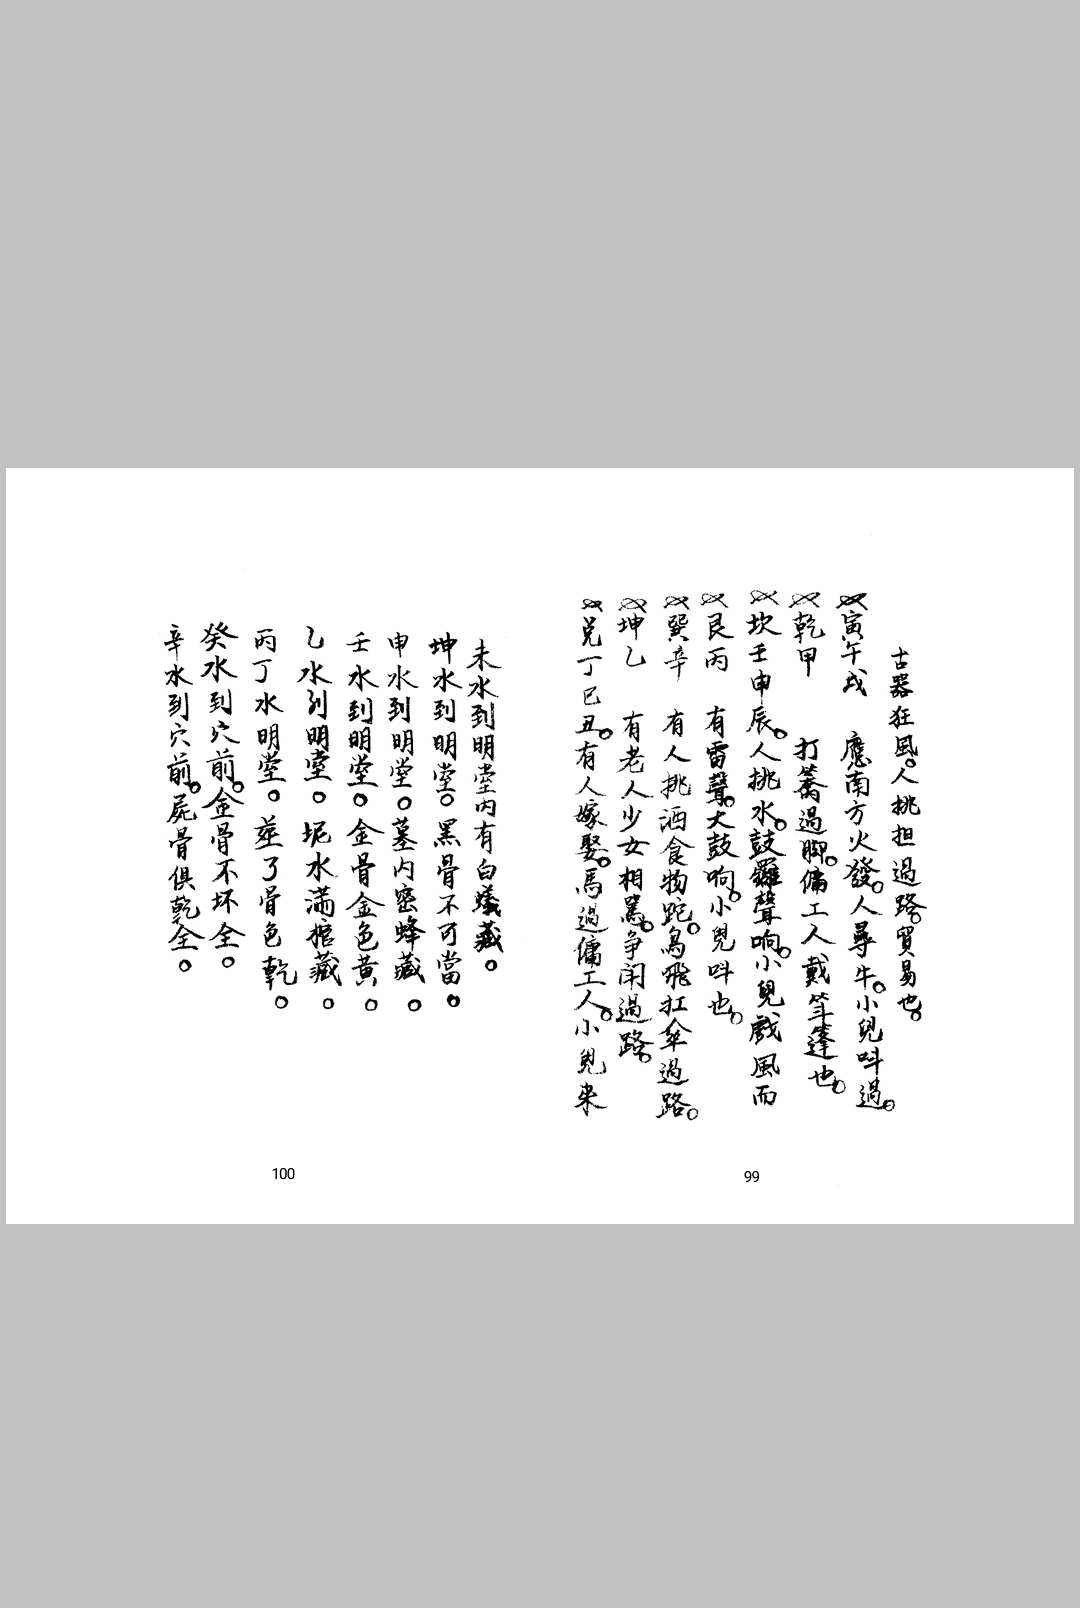 古器狂風。人挑担過路。貿易也。
寅午戌 應南方火發。人尋牛。小兒呌過。
乾甲 打籌過脚。傭工人戴笠蓬也。
坎壬申辰。人挑水。鼓鑼聲响。小兒戲風雨
艮丙 有雷聲。大鼓响。小兒呌也。
巽辛 有人挑酒食物跎。鳥飛扛傘過路。
坤乙 有老人少女相罵。争閙過路。
兑丁巳丑。有人嫁娶。馬過傭工人。小兒来
99
未水到明堂内有白蟻藏。
坤水到明堂。黑骨不可當。
申水到明堂。墓内密蜂藏。
壬水到明堂。金骨金色黄。
乙水到明堂。坭水滿棺藏。
丙丁水明堂。葬了骨色乾。
癸水到穴前。金骨不坏全。
辛水到穴前。屍骨俱乾全。
100